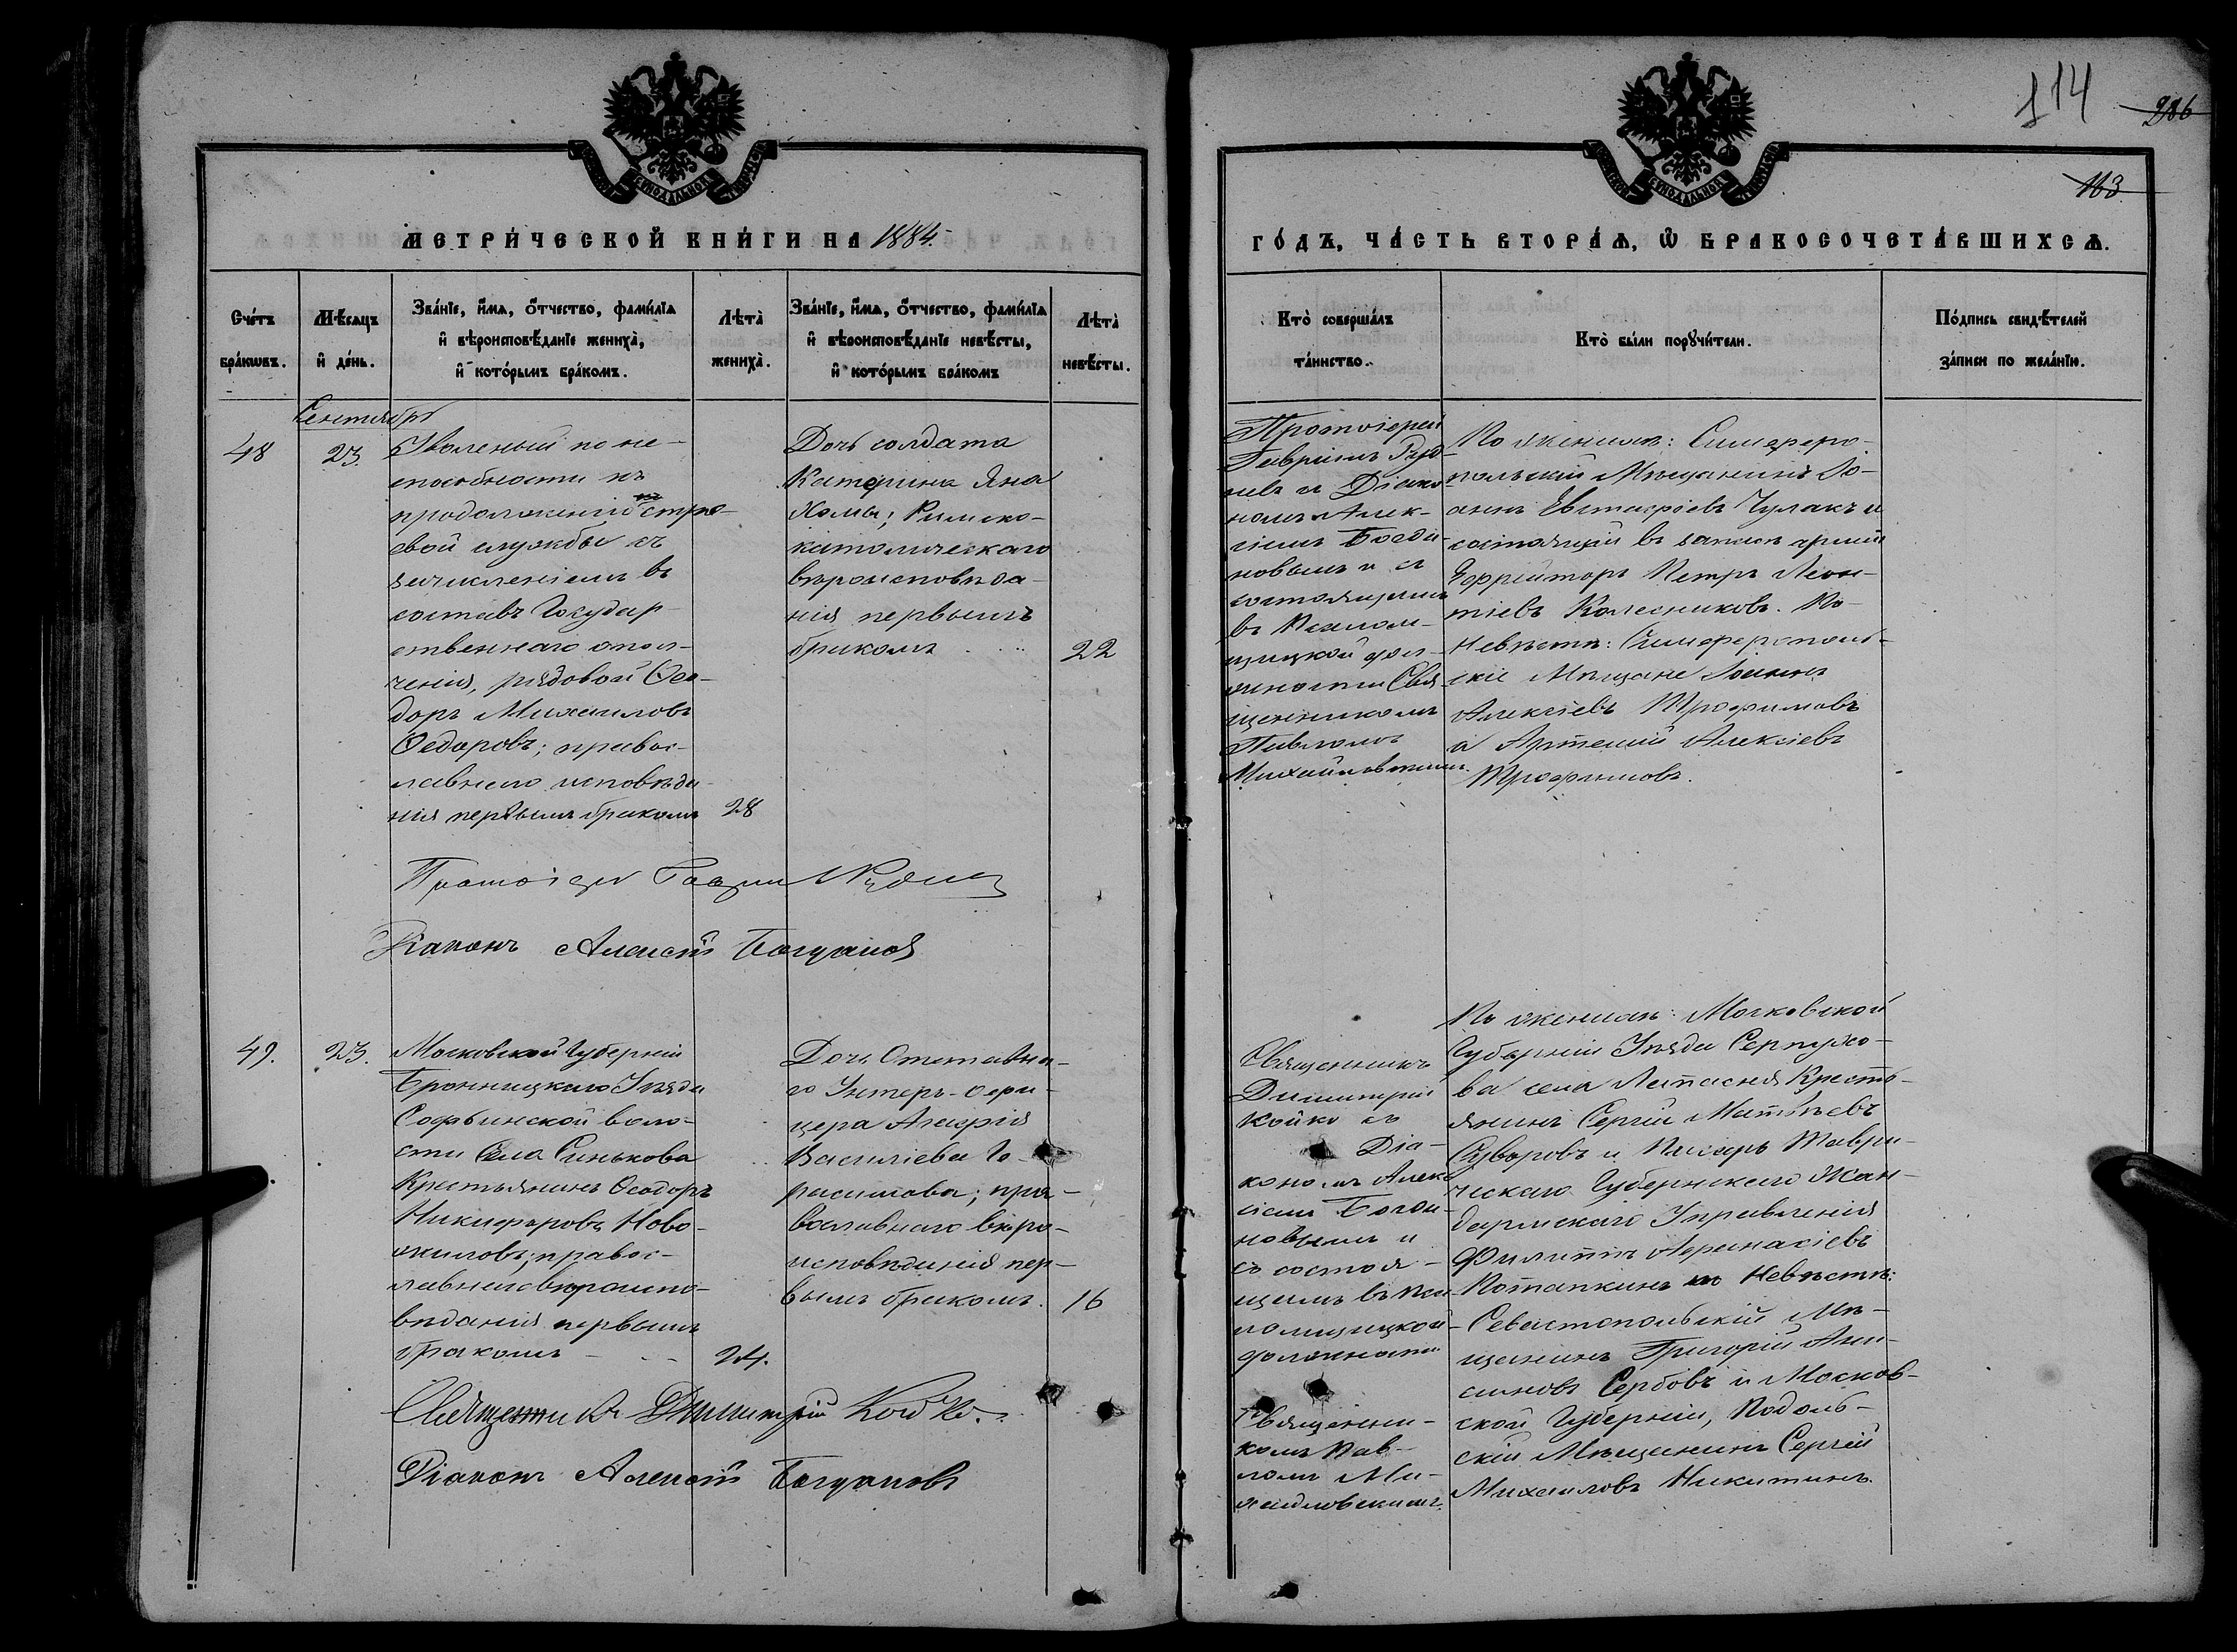 114
286
163
МЕТРИ́ЧЕСКОЙ КНИ́ГИ НА 1884.
ГО́ДЪ, ЧА́СТЬ ВТОРА́Ѧ, Ѡ БРАКОСОЧЕТА́ВШИХСѦ.
Сче́тъ бра́кѡвъ.
Мѣ́сяцъ и де́нь.
Зва́нїе, и́мѧ, о́тчество, фами́лїа
и вѣроисповѣ́данїе жениха̀,
и кото́рымъ бра́комъ.
Лѣта̀ жениха̀.
Зва́нїе, и́мѧ, о́тчество, фами́лїа
и вѣроисповѣ́данїе невѣ́сты,
и кото́рымъ бра́комъ
Лѣта̀ невѣ́сты.
Кто̀ соверша́лъ
та́инство.
Кто̀ бы́ли порꙋчи́тели.
По́дпись свидѣ́телей
за́писи по жела́нїю.
Сентябрь
48
23.
Уволеный по не-
способности къ
продолженію стро-
евой службы съ
зачисленіемъ въ
составъ Государ-
ственнаго опол-
ченія, рядовой Ѳео-
доръ Михаиловъ
Ѳедоровъ; правос-
лавнаго исповѣда-
нія первымъ бракомъ
28
Дочь солдата
Катерина Яна
Хомы; Римско-
католическаго
вѣроисповѣда-
нія первымъ
бракомъ
22
Протоіерей
Гавріилъ Руд-
невъ съ Діако-
номъ Алек-
сіемъ Богда-
новымъ и съ
состоящимъ
въ Псалом-
щицкой дол-
жности Свя-
щенникомъ
Павломъ
Михайловскимъ.
По женихѣ: Симферо-
польскій Мѣщанинъ Іо-
аннъ Евстафіевъ Чулакъ и
состоящій въ запасѣ арміи
Ефрейторъ Петръ Леон-
тіевъ Колесниковъ. По
Невѣстѣ: Симферополь-
скіе Мѣщане Іоаннъ
Алексіевъ Трофимовъ
и Артемій Алексіевъ
Трофимовъ.
Протоіерей Гавріилъ Рудневъ
Діаконъ Алексій Богдановъ
49.
23.
Московской Губерніи
Бронницкаго Уѣзда
Софьинской воло-
сти Села Синькова
Крестьянинъ Ѳеодоръ
Никифоровъ Ново-
жиловъ; правос-
лавнаго вѣроиспо-
вѣданія первымъ
бракомъ
24.
Дочь Отставна-
го Унтеръ-офи-
цера
Васильева Ге-
расимова; пра-
вославнаго вѣро-
исповѣданія пер-
вымъ бракомъ.
16
Священникъ
Димитрій
Койко съ
Діа-
кономъ Алек-
сіемъ Богда-
новымъ и
съ состоя-
щимъ въ Пса-
ломщицкой
должности
Священни-
комъ Пав-
ломъ Ми-
хайловскимъ.
По женихѣ: Московской
Губерніи Уѣзда Серпухо-
ва села Лопасня Кресть-
янинъ Сергій Матвѣевъ
Суворовъ и Писарь Таври-
ческаго Губернскаго Жан-
дармскаго Управленія
Филиппъ Аѳанасіевъ
Потапкинъ по Невѣстѣ:
Севастопольскій Мѣ-
щанинъ Григорій
Сербовъ и Москов-
ской Губерніи, Подоль-
скій Мѣщанинъ Сергій
Михаиловъ Никитинъ.
Священникъ Димитрій Койко.
Діаконъ Алексій Богдановъ